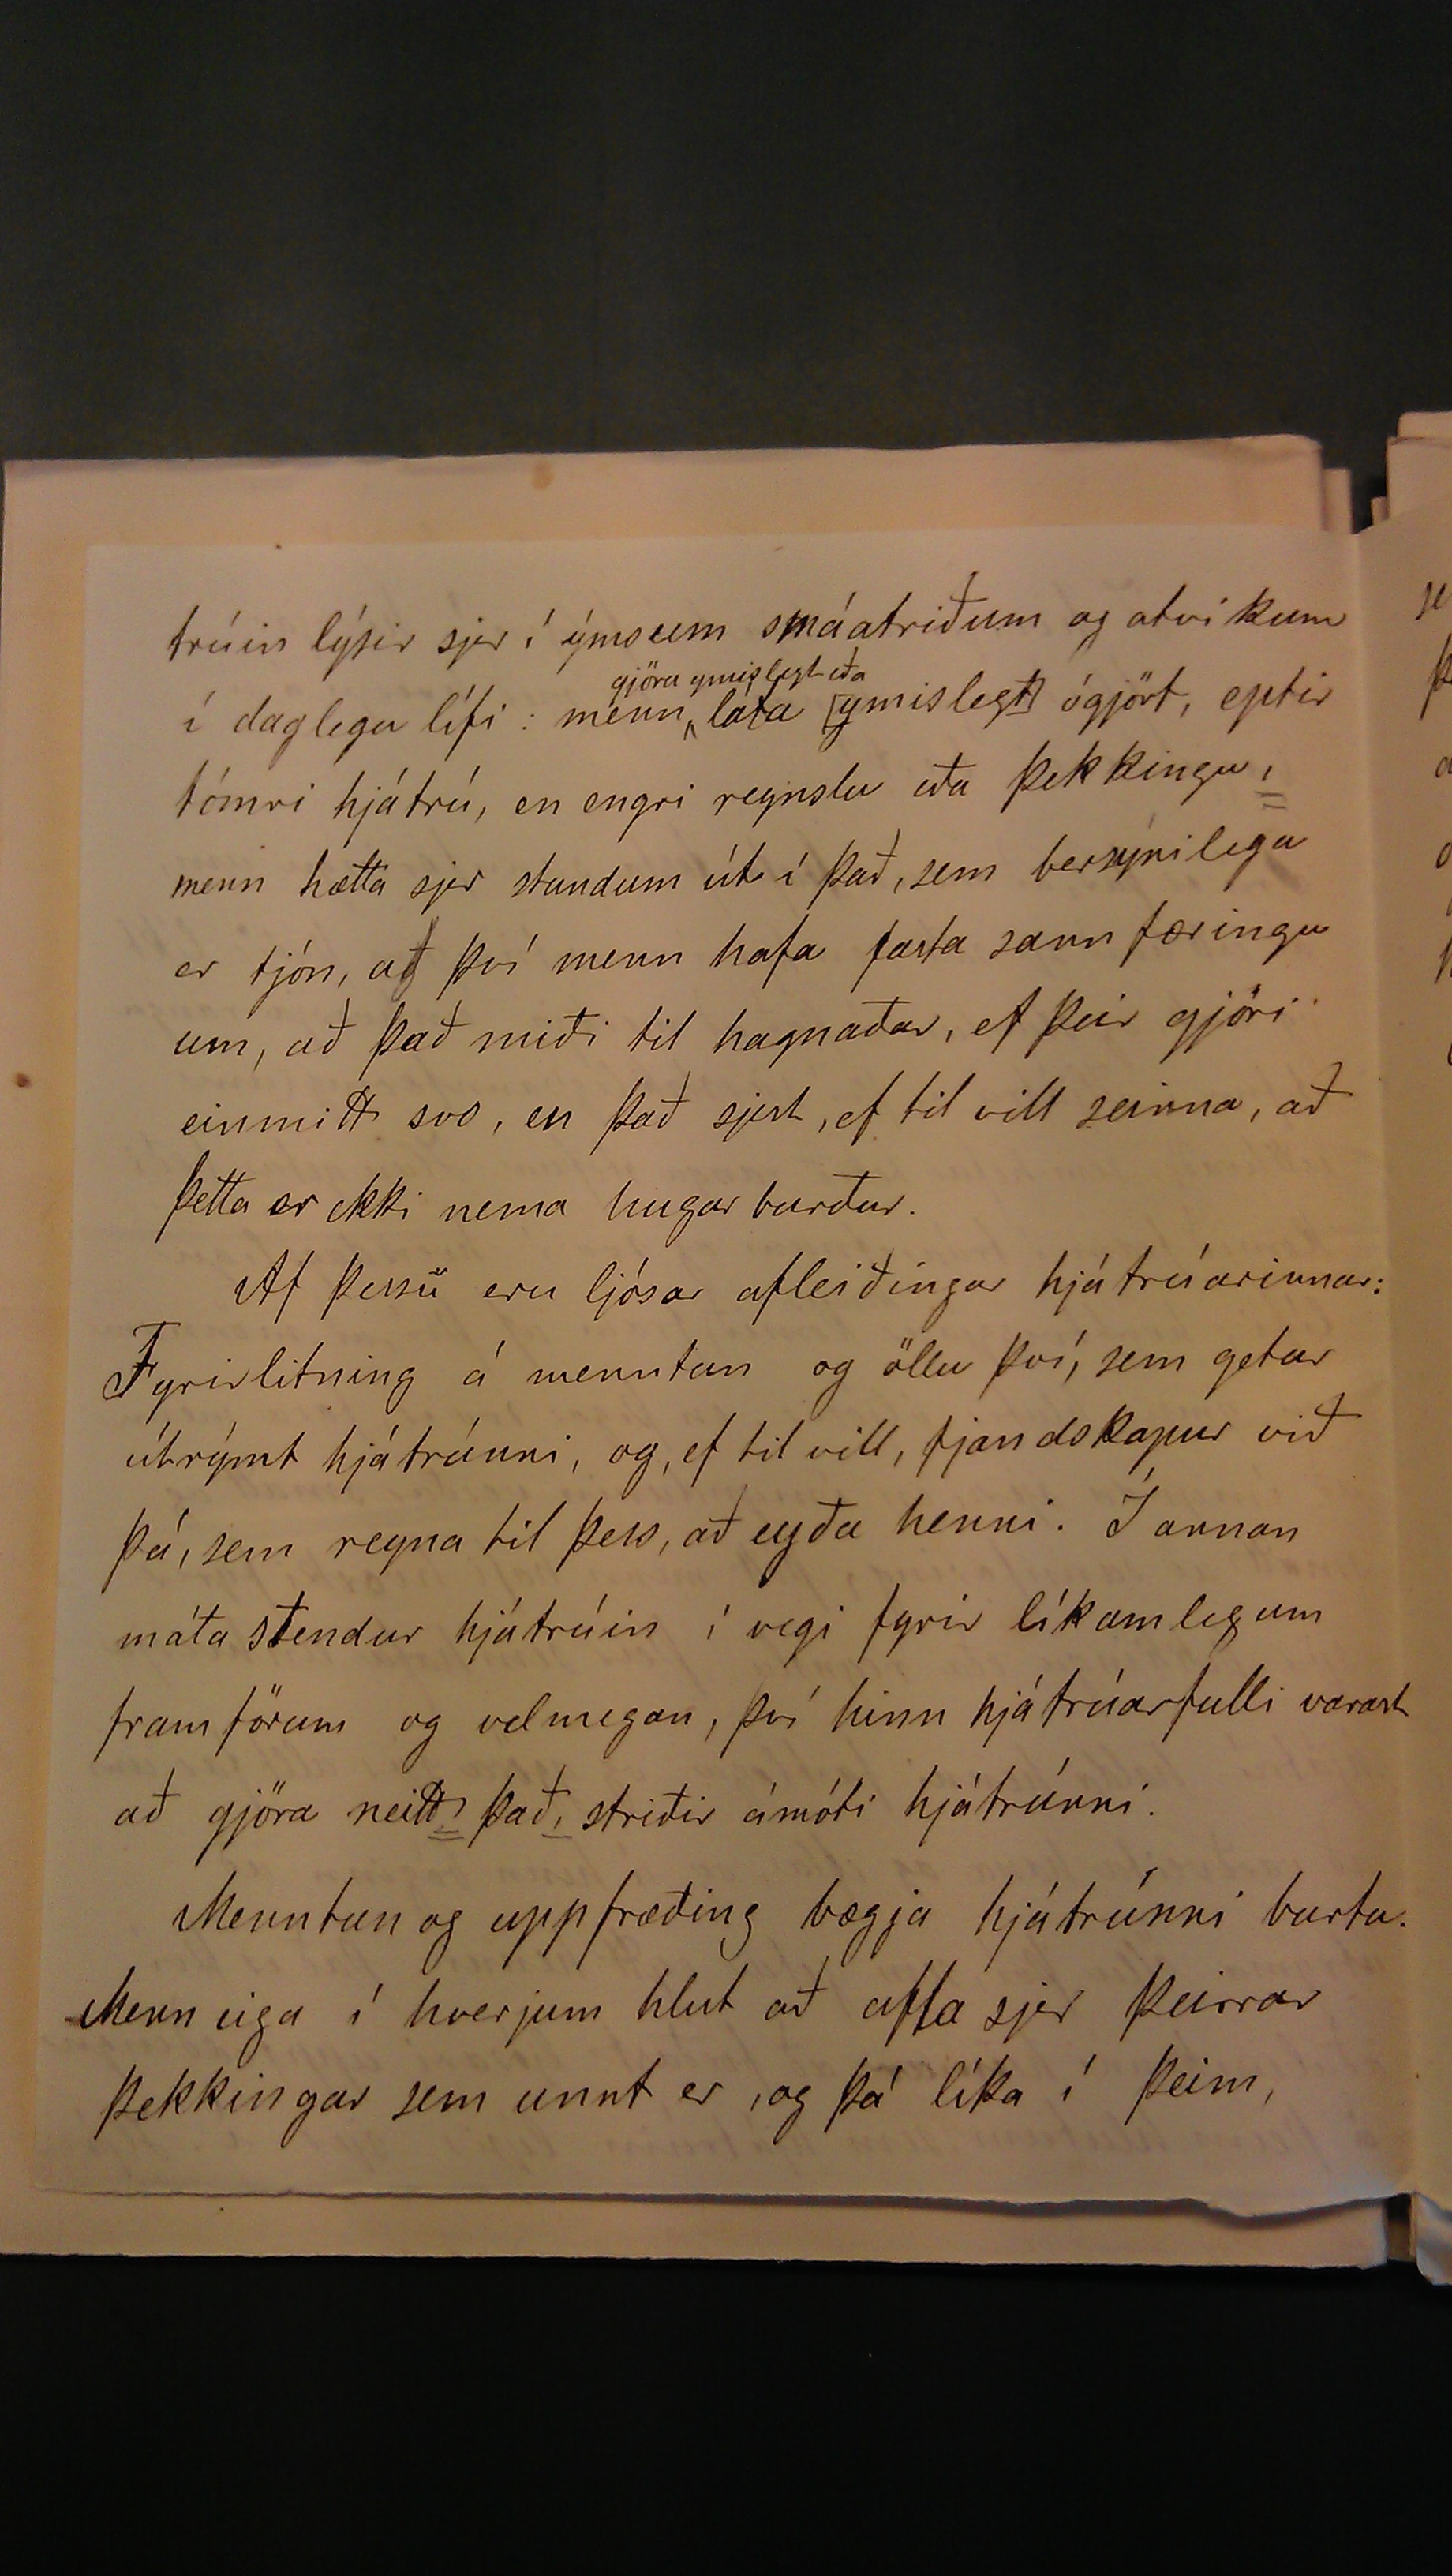 trúin lýsir sjer í ýmsum smáatriðum og atvikum
gjöra ymislegt eða
í daglegu lífi : menn láta [ymislegt] ógjört, eptir
tómri hjátrú, en engri reynslu eða þekkingu,
menn hætta sjer stundum út í það, sem bersýnilega
er tjón, af því menn hafa fasta sannfæringu
um, að það miði til hagnaðar, ef þeir gjöri
einmitt svo, en það sjest, ef til vill seinna, að
þetta er ekki nema hugarburður.
Af þessu eru ljósar afleiðingar hjátrúarinnar:
Fyrirlitning á menntun og öllu því, sem getur
útrýmt hjátrúnni, og, ef til vill, fjandskapur við
þá, sem reyna til þess, að eyða henni. Í annan
máta stendur hjátrúin í vegi fyrir líkamlegum
framförum og velmegan, því hinn hjátrúarfulli varast
að gjöra neitt, það, striðir ámóti hjátrúnni.
Menntun og uppfræðing bægja hjátrúnni burtu.
Menn eiga í hverjum hlut að afla sjer þeirrar
þekkingar sem unnt er, og þá líka í þeim,